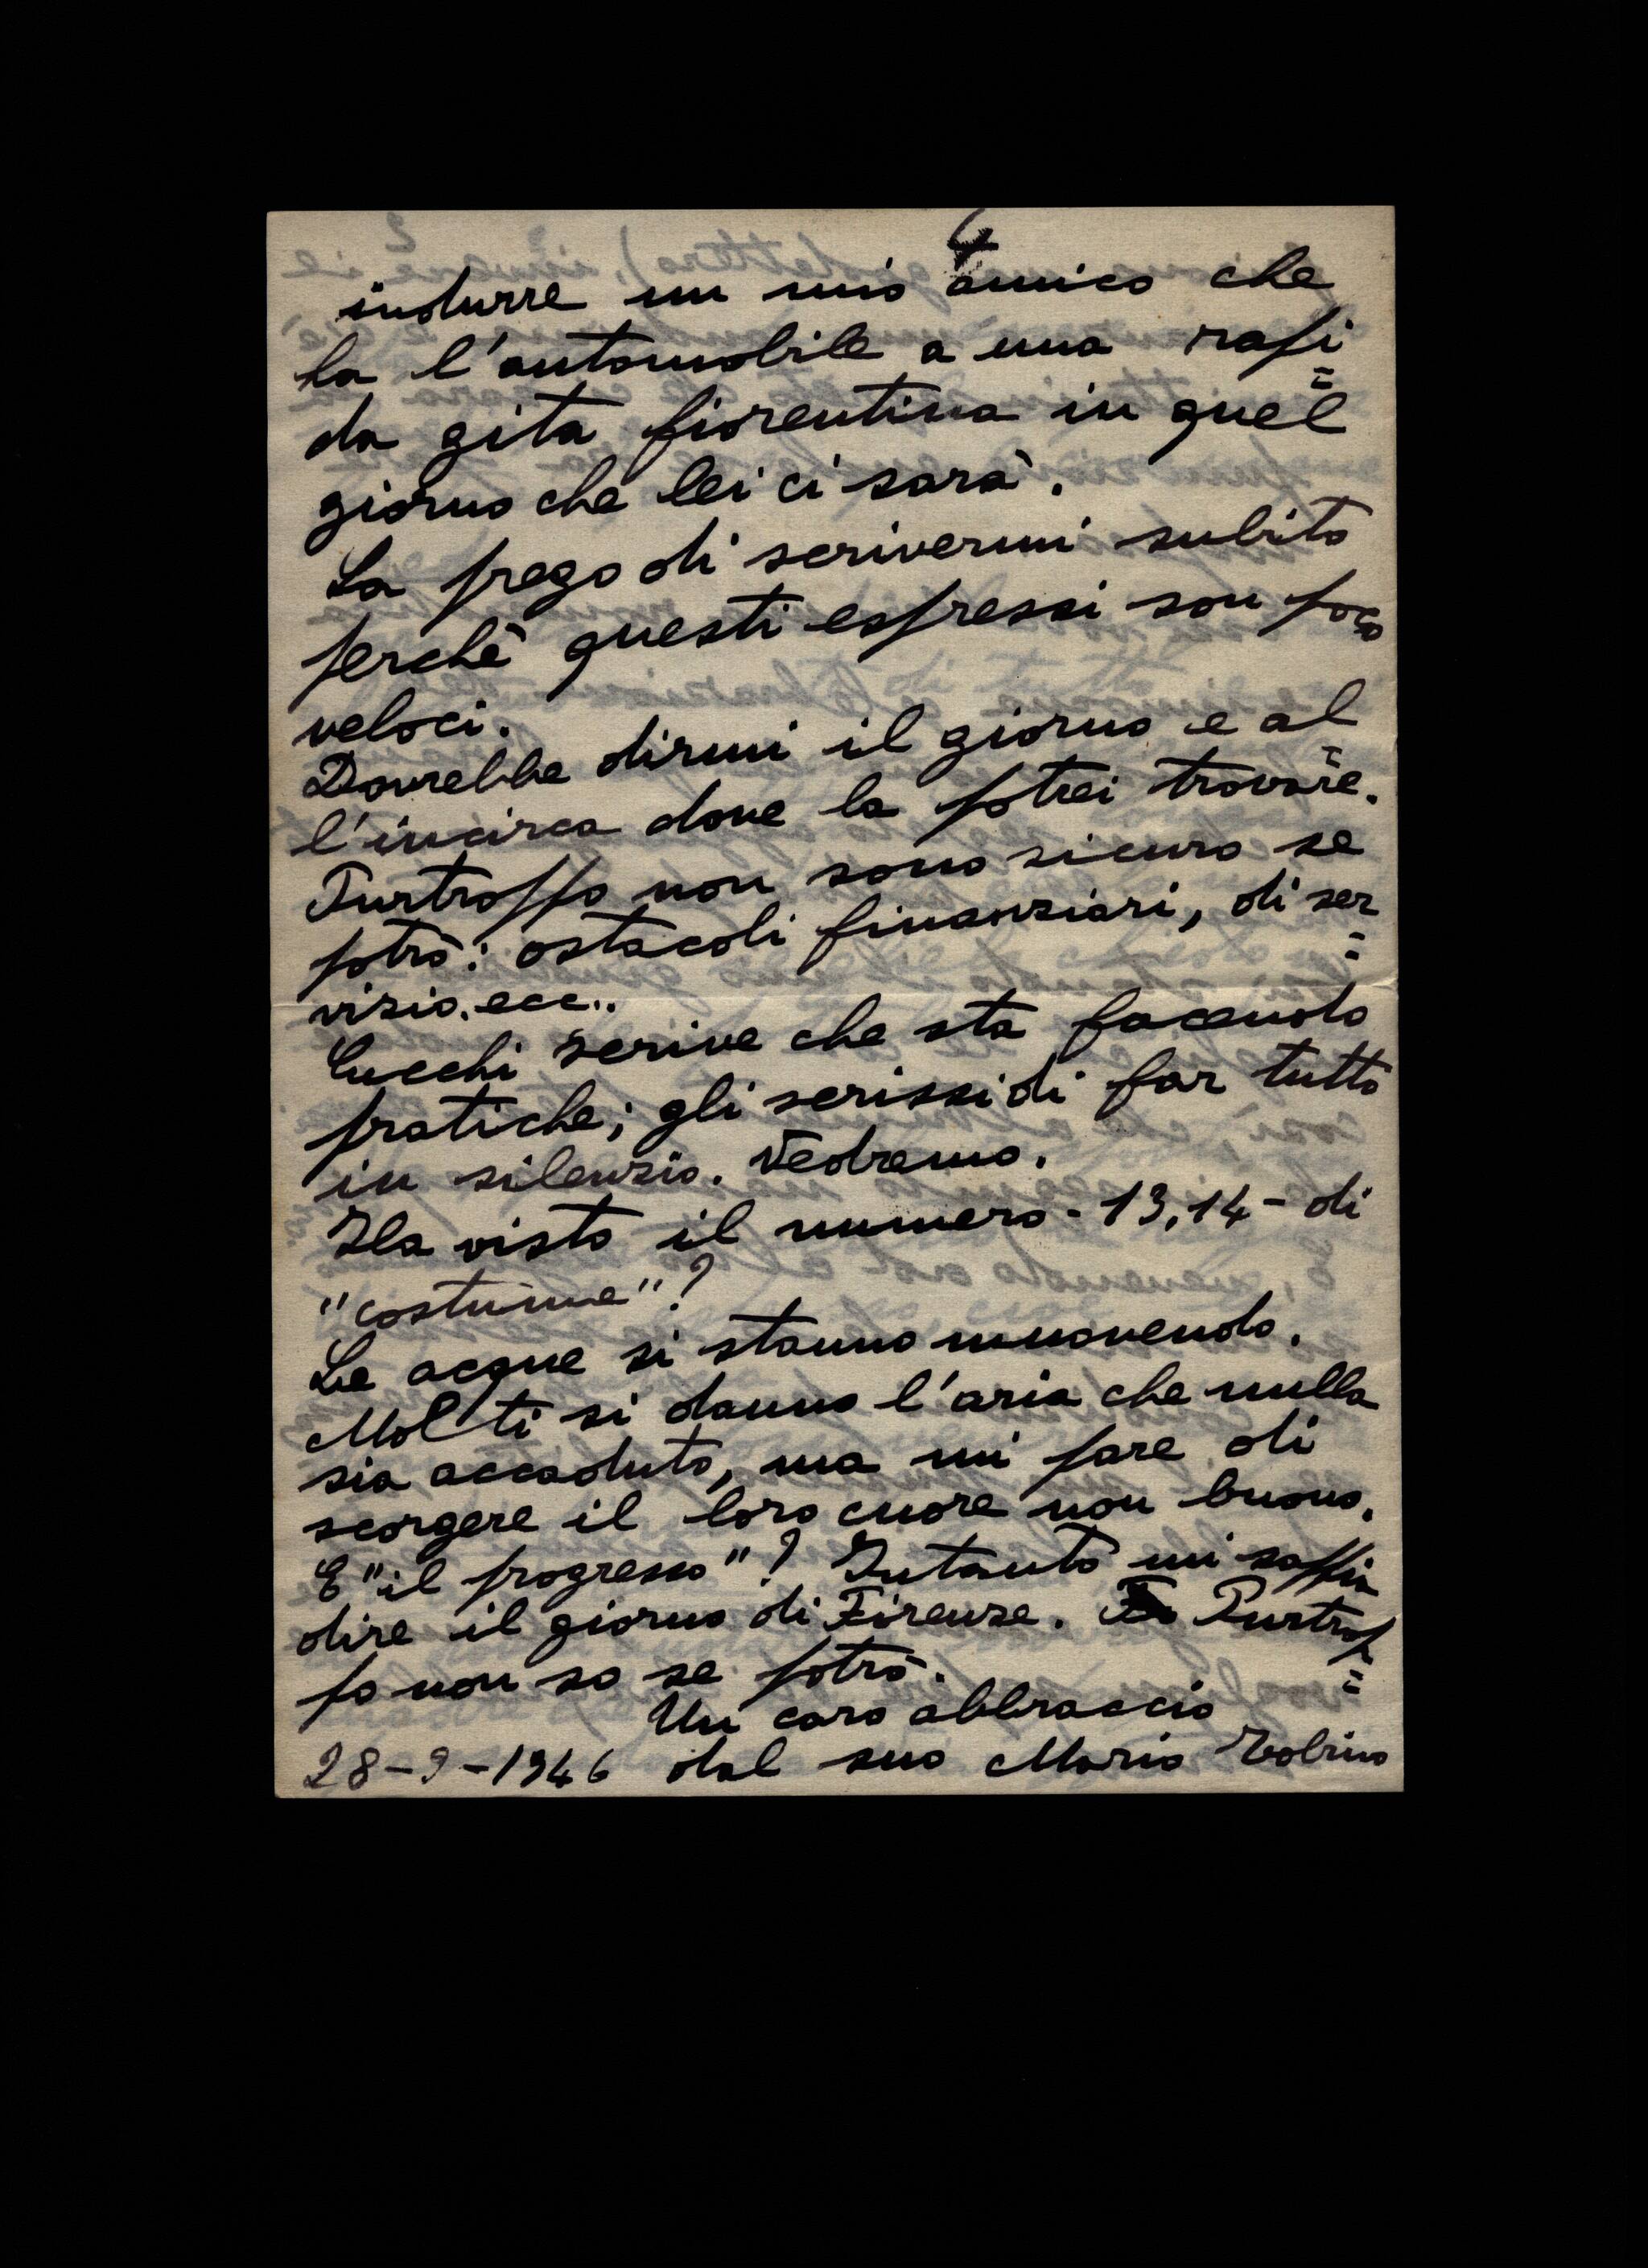 4
indurre un mio amico che
ha l'automobile a una rapi=
da gita fiorentina in quel
giorno che lei ci sarà.
La prego di scrivermi subito
perchè questi espressi son poco
veloci.
Dovrebbe dirmi il giorno e al=
l'incirca dove la potrei trovare.
Purtroppo non sono sicuro se
potrò: ostacoli finanziari, di ser=
vizio. ecc..
Cucchi scrive che sta facendo
pratiche; gli scrissi di far tutto
in silenzio. Vedremo.
Ha visto il numero - 13, 14 - di
"costume"?
Le acque si stanno muovendo.
Molti si danno l'aria che nulla
sia accaduto, ma mi pare di
scorgere il loro cuore non buono.
E "il progresso"? Intanto mi sappia
dire il giorno di Firenze. Purtrop=
po non so se potrò.
Un caro abbraccio
28-9-1946 dal suo Mario Tobino